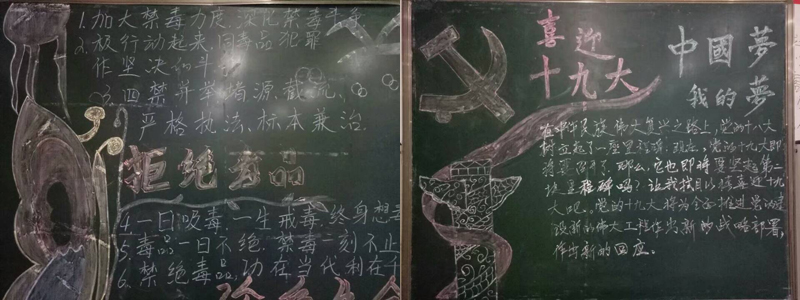 1.加大禁毒力度、深化禁毒斗争
2.积极行动起来、同毒品犯罪
作坚决的斗争
3.四禁并举、堵源、截流、
严格执法、标本兼治
拒绝毒品
4.一日吸毒、一生戒毒、终身想毒
5.毒品一日不绝、禁毒一刻不止
6.禁绝毒品、功在当代、利在千
喜迎
十九大
中國夢
我的夢
在中华民族伟大复兴之路上,党的十八大
树立起了一座里程碑。现在,党的十九大即
将要召开了,那么,它也即将要竖起第二
块里程碑吗?让我们目以待喜迎十九
大吧。党的十九大将为全面推进党的建
设新的伟大工程作出新的战略部署,
作出新的回应。